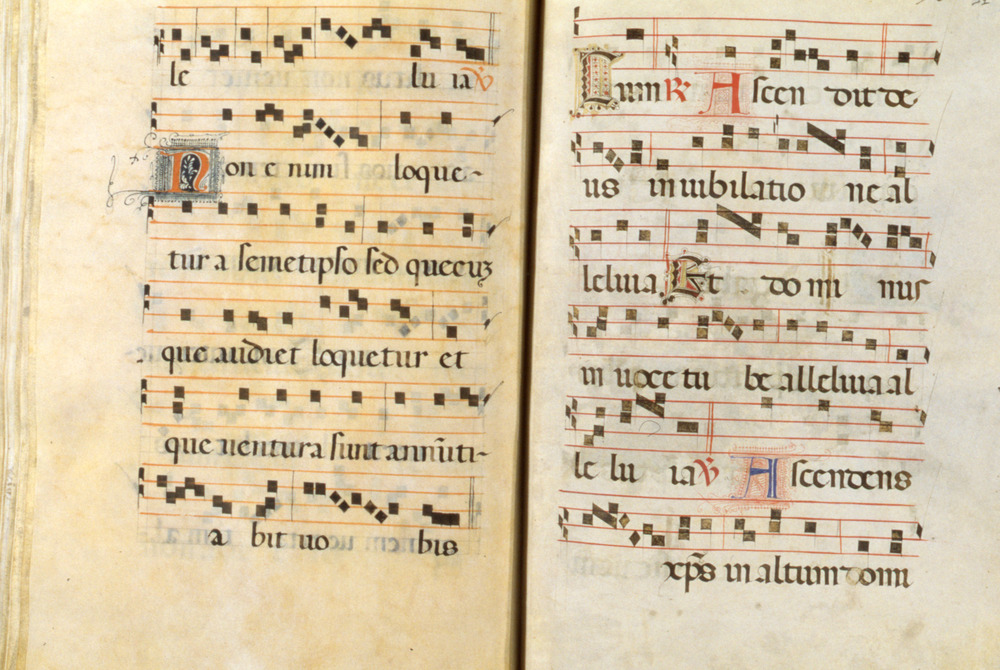 le lu ia ℣
Non enim loque-
tur a semetipso sed quecuȝ
que audiet loquetur et
que uentura sunt annūti-
a bit uo bis
Lum ℟ Ascen dit de-
us in iubilatio ne al
leluia Et do mi nus
in uoce tu be alleluia al
le lu ia ℣ Ascendens
xp̄s in altum domi